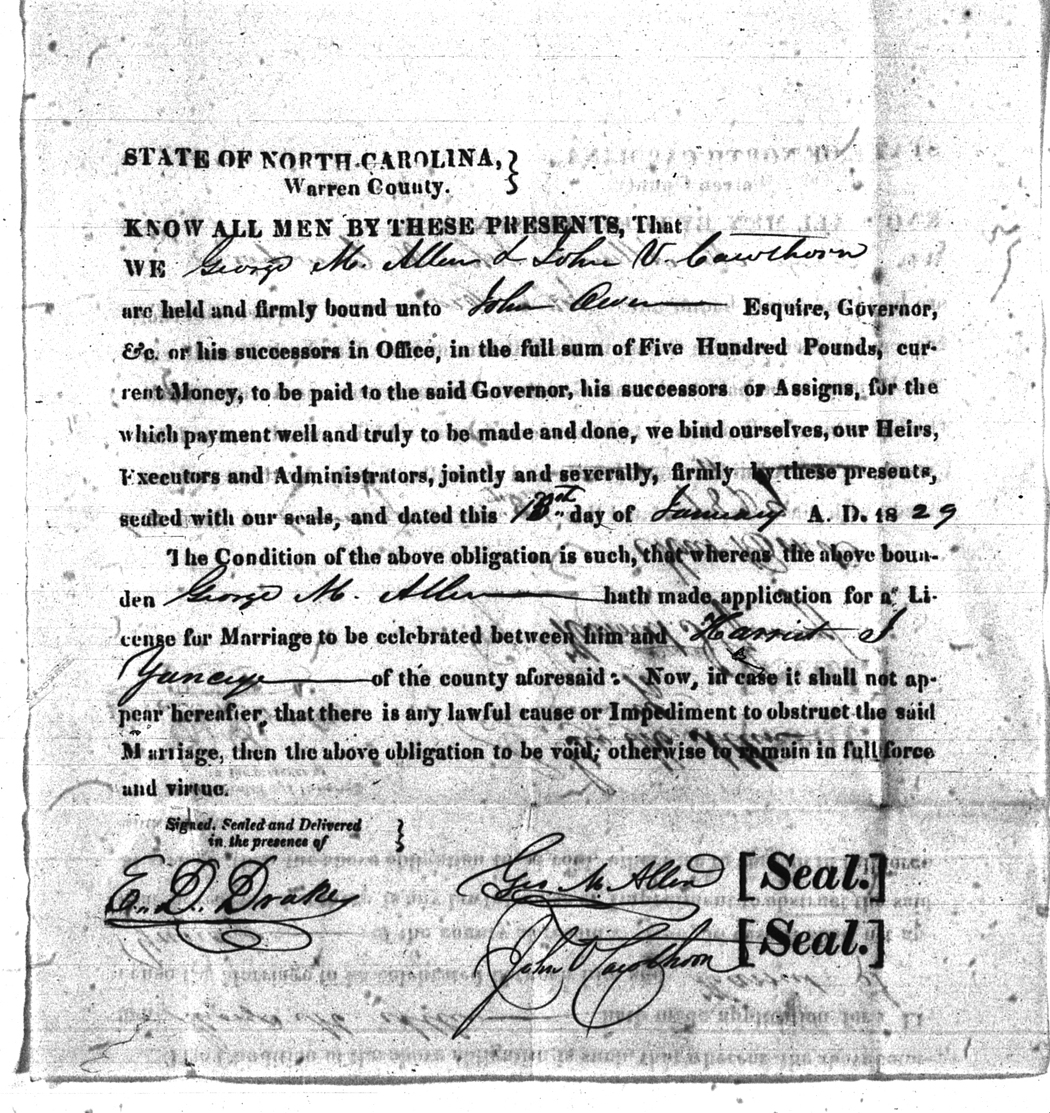 STATE OF NORTH-CAROLINA, }
Warren County.
KNOW ALL MEN BY THESE PRESENTS, That
WE George M. Allen & John V. Cawthorn
are held and firmly bound unto John Owen Esquire, Governor,
&c. or his successors in Office, in the full sum of Five Hundred Pounds, cur-
rent Money, to be paid to the said Governor, his successors or Assigns, for the
which payment well and truly to be made and done, we bind ourselves, our Heirs,
Executors and Administrators, jointly and severally, firmly by these presents,
sealed with our seals, and dated this day of January A. D. 18 29
The Condition of the above obligation is such, that whereas the above boun-
den George M. Allen hath made application for a Li-
cense for Marriage to be celebrated between him and Harriet
Yancey of the county aforesaid: Now, in case it shall not ap-
pear hereafter, that there is any lawful cause or Impediment to obstruct the said
Marriage, then the above obligation to be void; otherwise to remain in full force
and virtue.
Signed, Sealed and Delivered }
in the presence of
E. D. Drake
Geo M. Allen [Seal.]
John V Cawthorn [Seal.]